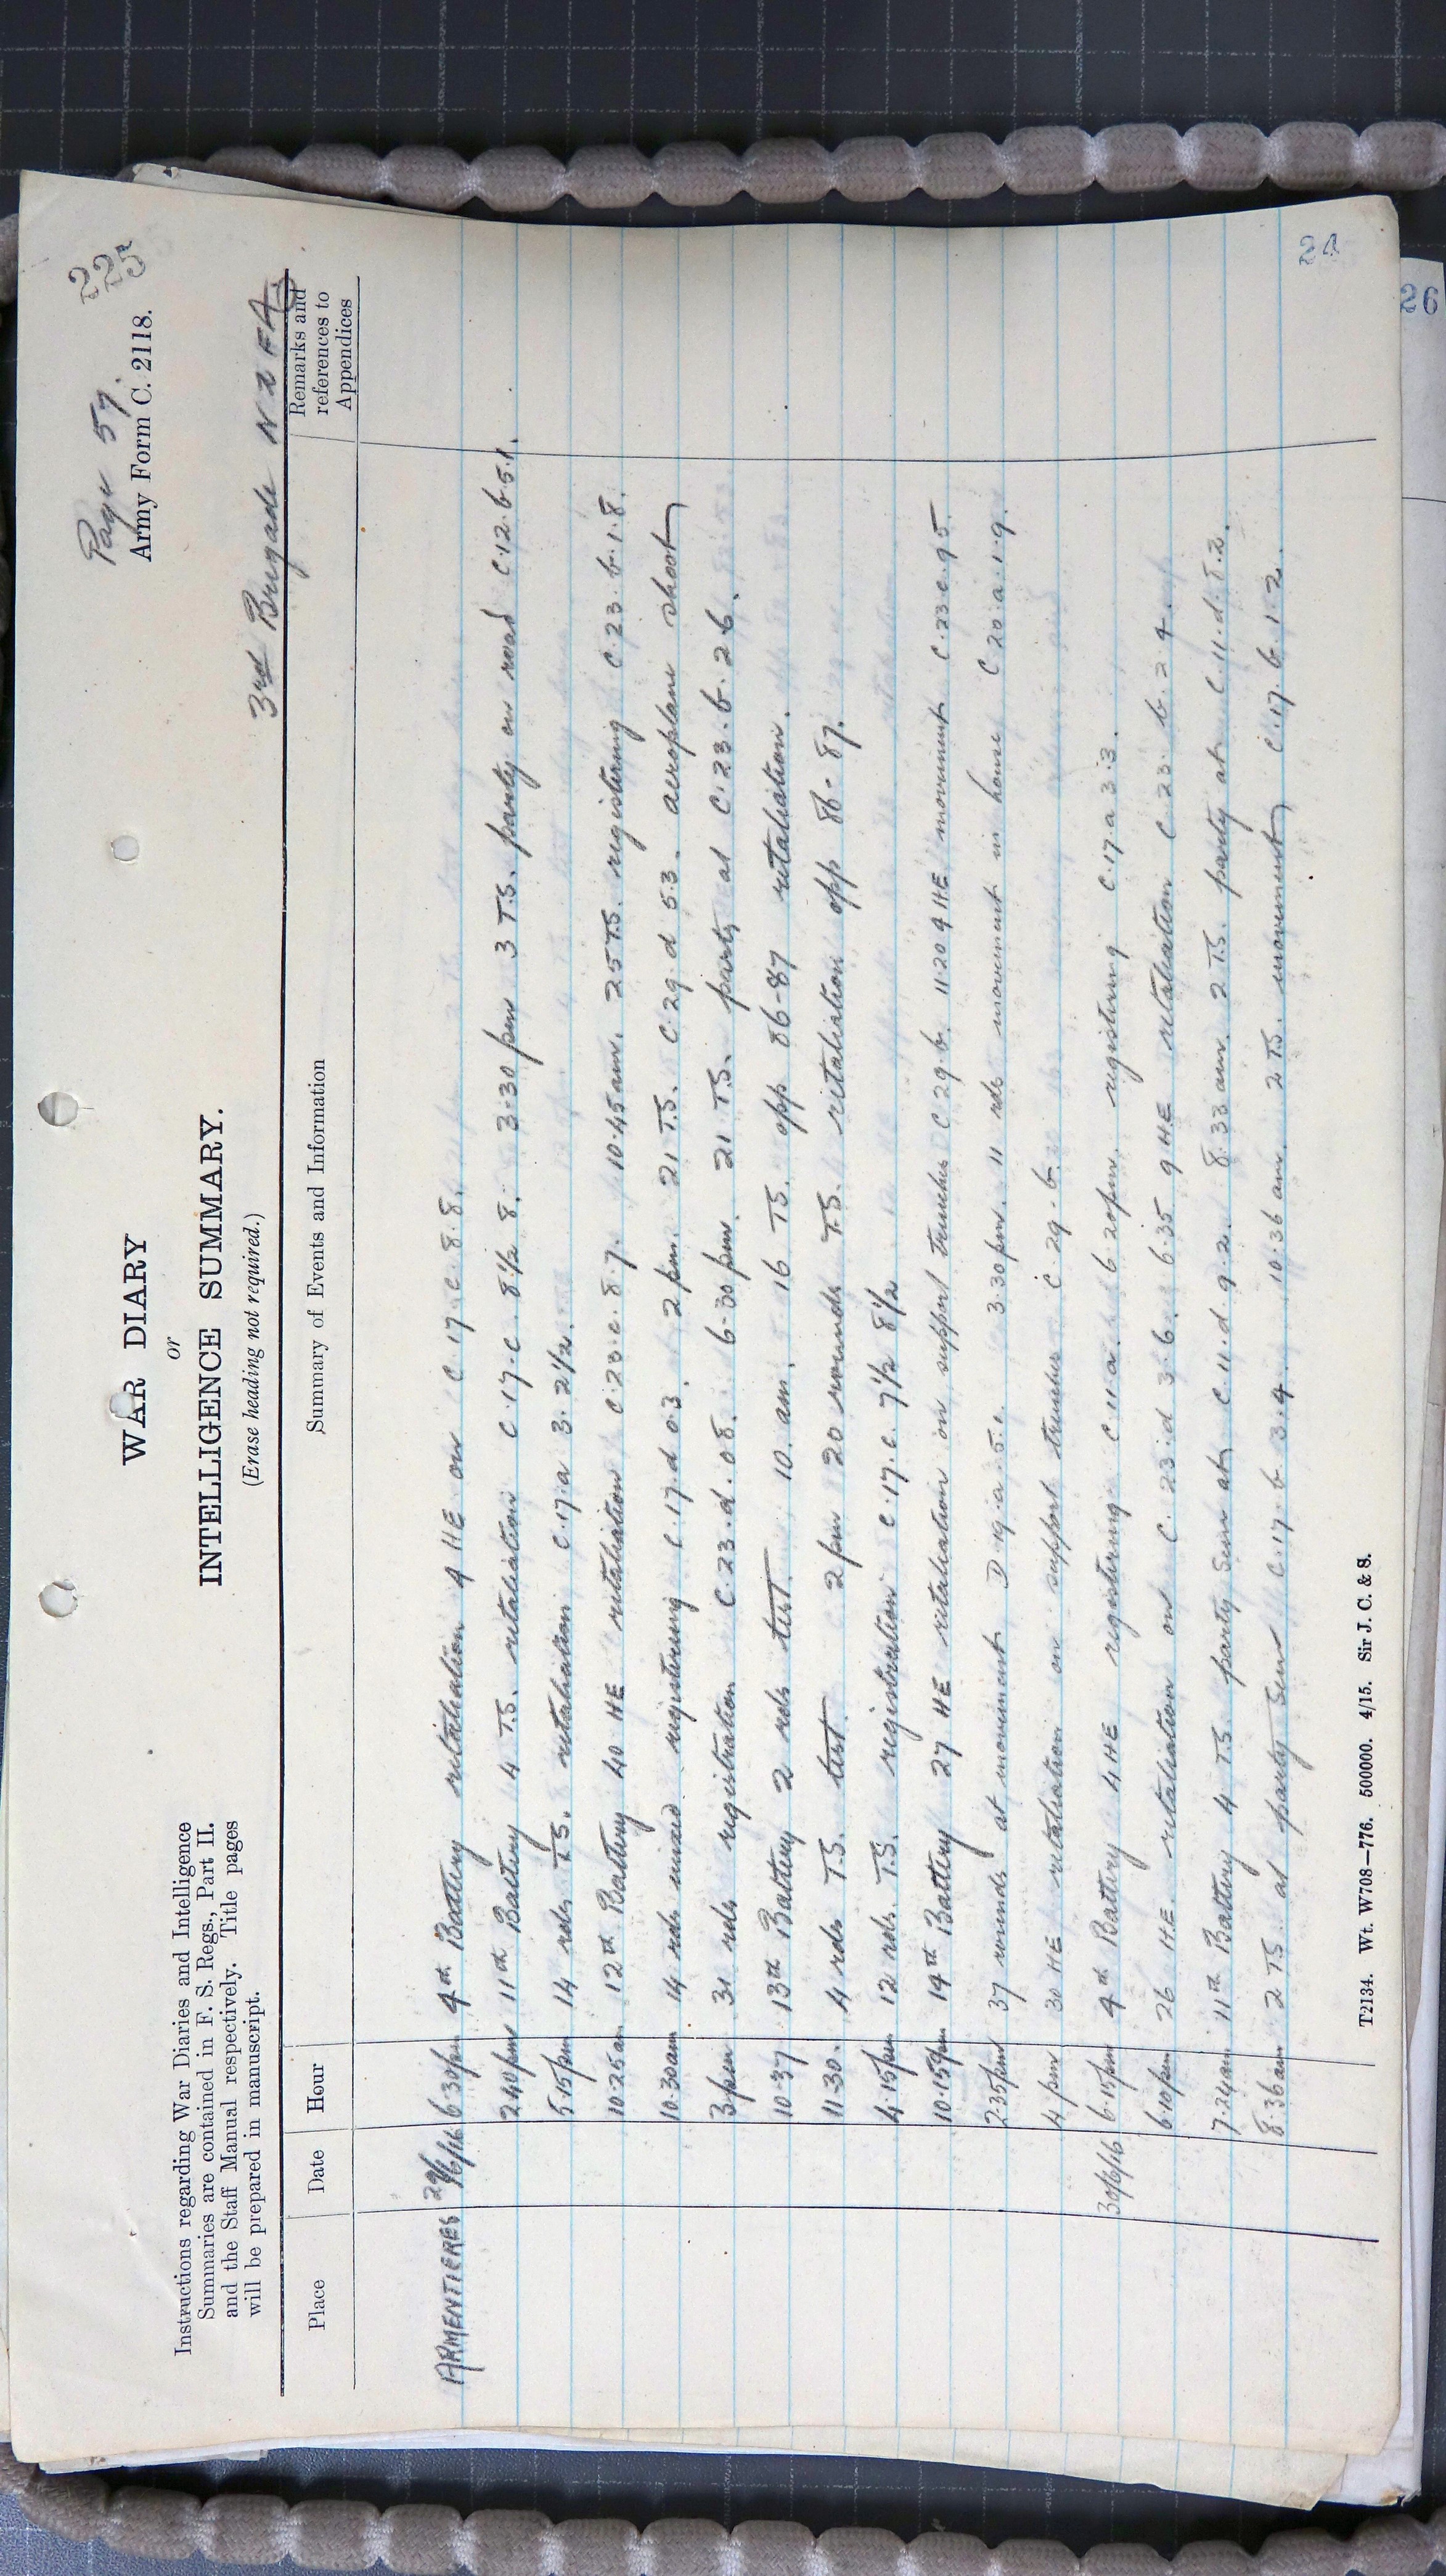 225
Page 57.
Army Form C. 2118.
WAR DIARY
or
INTELLIGENCE SUMMARY.
(Erase heading not required.)
Instructions regarding War Diaries and Intelligence
Summaries are contained in F. S. Regs., Part II.
and the Staff Manual respectively. Title pages
will be prepared in manuscript.
3rd Brigade N Z F A
Place Date Hour Summary of Events and Information Remarks and references to Appendices
ARMENTIERES 29/6/16 6.30pm 4th Battery retaliation 9 HE on C 17.c.8.8.
2.40pm 11th Battery 4 T.S. retaliation C.17.c. 8½ 8. 3.30 pm 3 T.S. party on road C.12.b.5.1.
5.15pm 14 rds T.S. retaliation C.17.a 3. 2½.
10.25am 12th Battery 40 HE retaliation C.23.c.8.7. 10.45am. 25 T.S. registering C.23.b.1.8.
10.30am 14 rds mixed registering C.17.d 0.3. 2 pm. 21 T.S. C.29.d 5.3. aeroplane shoot
3pm 31 rds registration C.23.d.08. 6-30 pm. 21 T.S. party at C.23.b.26.
10.37 13th Battery 2 rds test. 10. am. 16 T.S. opp 86-87 retaliation.
11.30. 4 rds T.S. test. 2 pm 20 rounds T.S. retaliation opp 86-87.
4.15pm 12 rds. T.S. registration C.17.c. 7½ 8½
10.15pm 14th Battery 27 HE retaliation on support trenches C.29.b. 11.20 9 HE movement C.23.c.95.
2.35pm 37 rounds at movement D 19.a.5.1. 3.30pm. 11 rds movement in house C 20.a.1.9.
4pm 30 HE retaliation on support trenches C.29.b.
30/6/16 6.15pm 4th Battery 4 HE registering C.11.a. 6.20pm. registering C.17.a 3.3.
6.10pm 26 HE. retaliation on C.23.d 3.6. 6.35 9 HE retaliation C.23.b.2.4.
7.24am 11th Battery 4 TS. party seen at C.11.d.9.2. 8.33 am. 2 T.S. party at C.11.d.8.2.
8.36am 2 TS. at party seen C.17.b.3.4. 10.36 am. 2 T.S. movement C.17.b.1.2.
T2134. Wt. W708—776. 500000. 4/15. Sir J. C. & S.
24
26